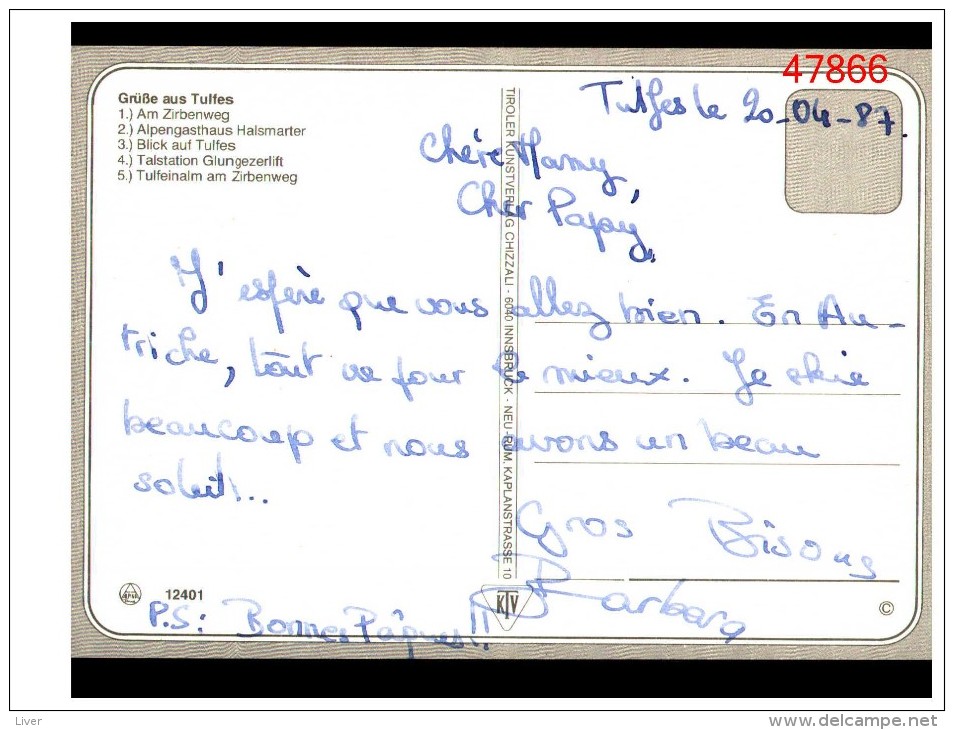 47866
Grüße aus Tulfes
1.) Am Zirbenweg
2.) Alpengasthaus Halsmarter
3.) Blick auf Tulfes
4.) Talstation Glungezerlift
5.) Tulfeinalm am Zirbenweg
TIROLER KUNSTVERLAG CHIZZALI - 6040 INNSBRUCK - NEU-RUM, KAPLANSTRASSE 10
Tulfes le 20-04-87.
Chère Mamy,
Cher Papy,
J'espère que vous allez bien. En Au-
triche, tout va pour le mieux. Je skie
beaucoup et nous avons un beau
soleil!...
Gros Bisous
Barbara
12401
KTV
©
P.S: Bonnes Pâques!!
Liver
www.delcampe.net